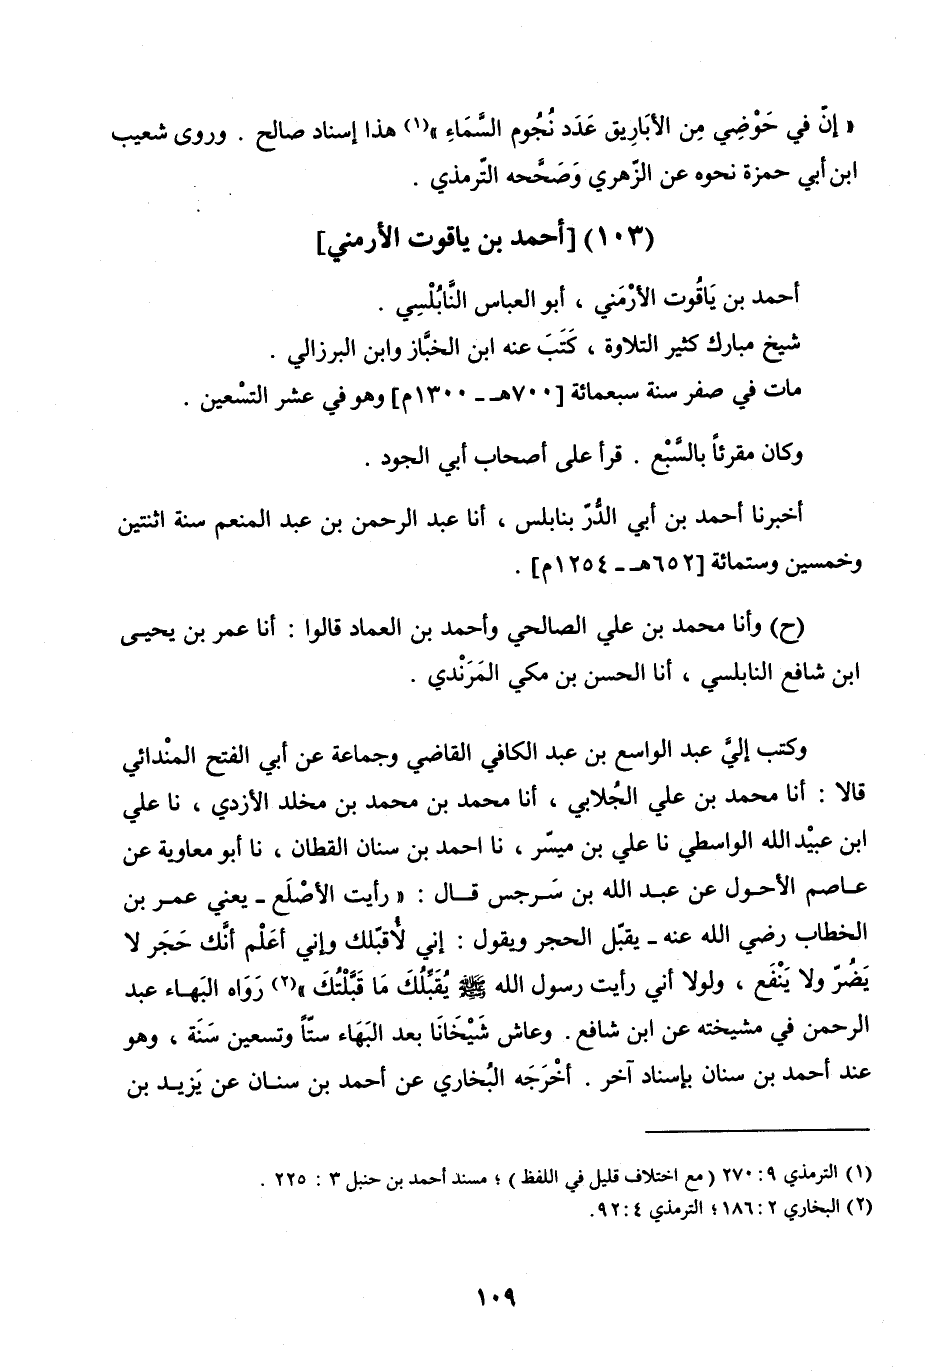 « إنّ في حَوْضِي مِن الأبَاريق عَدَد نُجُوم السَّمَاءِ »(١) هذا إسناد صالح . وروى شعيب
ابن أبي حمزة نحوه عن الزّهري وَصَحَّحه التّرمذي .
(١٠٣) [أحمد بن ياقوت الأرمني]
أحمد بن يَاقُوت الأرْمَني ، أبو العباس النَّابُلْسِي .
شيخ مبارك كثير التلاوة ، كَتَبَ عنه ابن الخبَّاز وابن البرزالي .
مات في صفر سنة سبعمائة [٧٠٠هـ ـ ١٣٠٠م] وهو في عشر التسْعين .
وكان مقرئاً بالسَّبْع . قرأ على أصحاب أبي الجود .
أخبرنا أحمد بن أبي الدُّرّ بنابلس ، أنا عبد الرحمن بن عبد المنعم سنة اثنتين
وخمسين وستمائة [٦٥٢هـ ـ ١٢٥٤م] .
(ح) وأنا محمد بن علي الصالحي وأحمد بن العماد قالوا : أنا عمر بن يحيى
ابن شافع النابلسي ، أنا الحسن بن مكي المَرَنْدي .
وكتب إليَّ عبد الواسع بن عبد الكافي القاضي وجماعة عن أبي الفتح المنْدائي
قالا : أنا محمد بن علي الجُلابي ، أنا محمد بن محمد بن مخلد الأزدي ، نا علي
ابن عبيْد الله الواسطي نا علي بن ميسّر ، نا احمد بن سنان القطان ، نا أبو معاوية عن
عاصم الأحول عن عبد الله بن سَرجس قال : « رأيت الأصْلَع ـ يعني عمر بن
الخطاب رضي الله عنه ـ يقبّل الحجر ويقول : إني لأُقبّلك وإني أعَلْم أنَّك حَجَر لا
يَضُرّ ولا يَنْفَع ، ولولا أني رأيت رسول الله ﷺ يُقَبِّلُكَ مَا قَبَّلْتُكَ »(٢) رَوَاه البَهاء عبد
الرحمن في مشيخته عن ابن شافع . وعاش شَيْخَانَا بعد البَهَاء ستّاً وتسعين سَنَة ، وهو
عند أحمد بن سنان بإسناد آخر . أخْرَجَه البُخاري عن أحمد بن سنان عن يَزيد بن
(١) الترمذي ٩ : ٢٧٠ (مع اختلاف قليل في اللفظ) ؛ مسند أحمد بن حنبل ٣ : ٢٢٥ .
(٢) البخاري ٢ : ١٨٦ ؛ الترمذي ٤ : ٩٢.
١٠٩